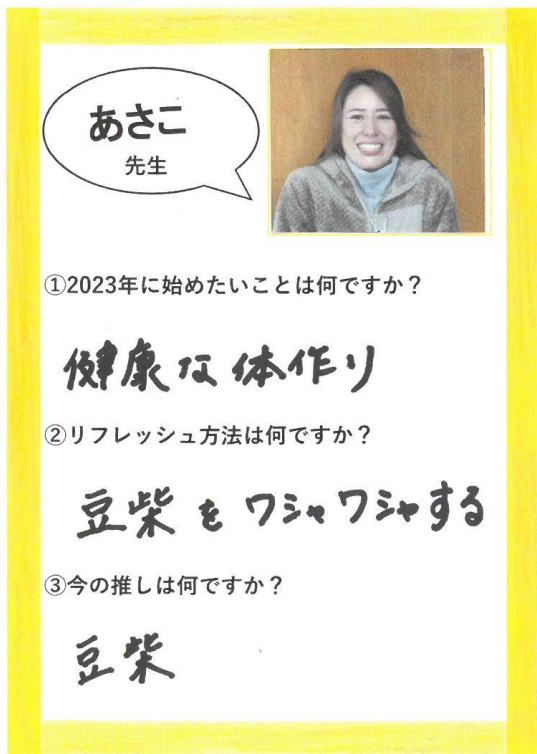 あさこ
先生
①2023年に始めたいことは何ですか？
健康な体作り
②リフレッシュ方法は何ですか？
豆柴をワシャワシャする
③今の推しは何ですか？
豆柴